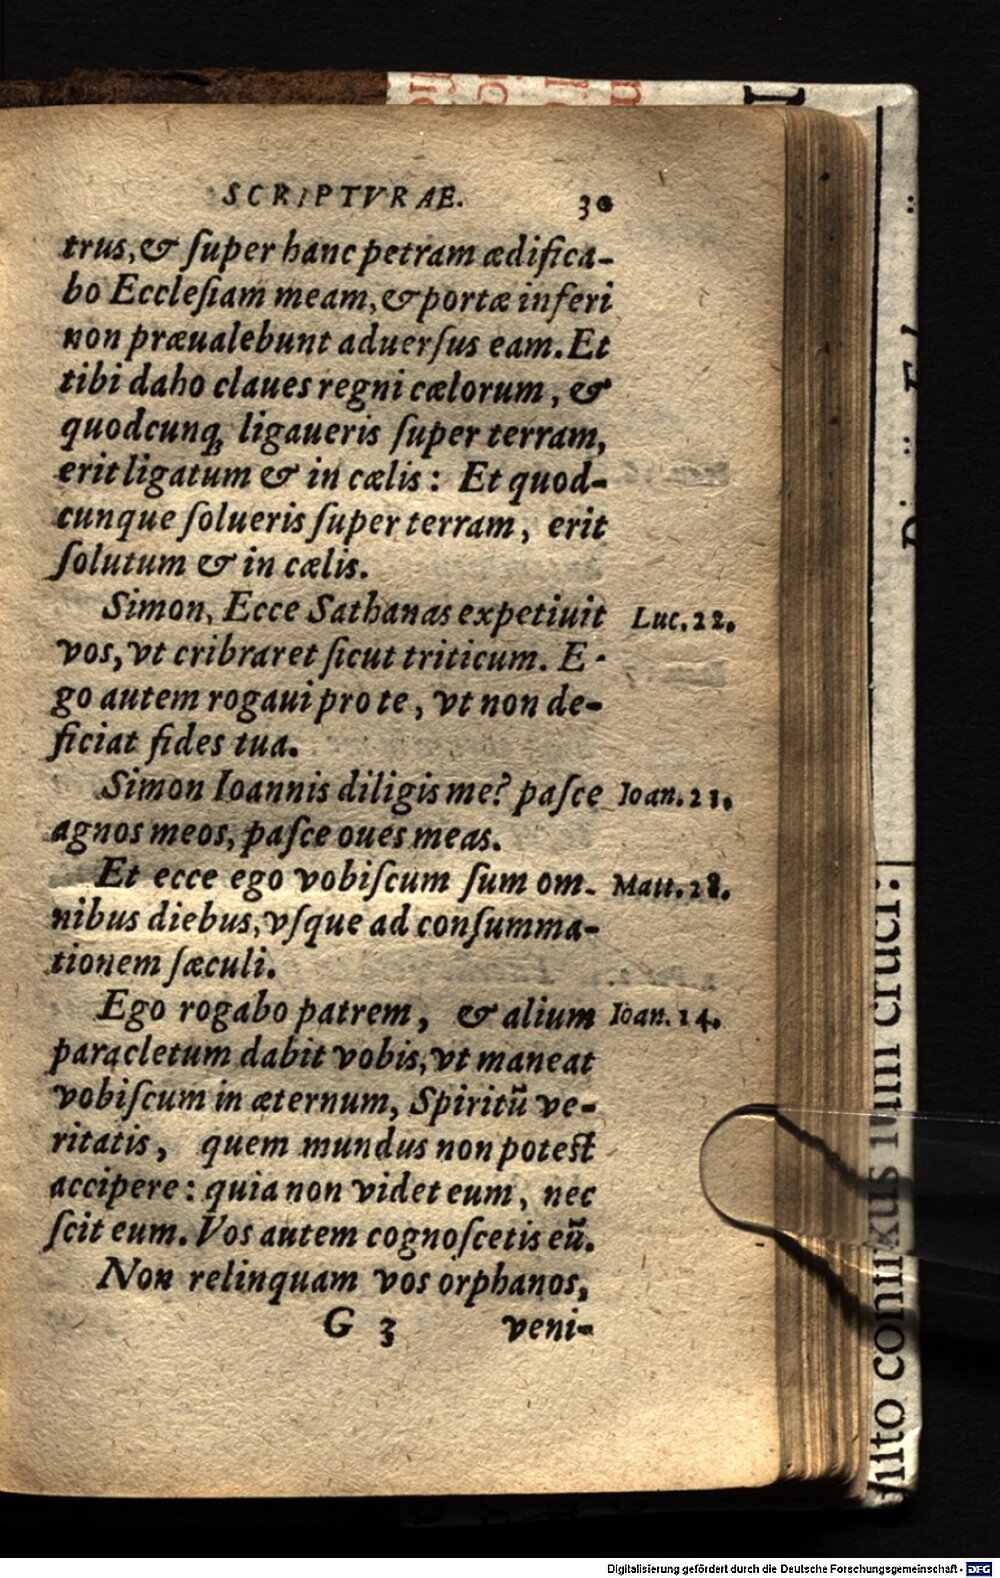 SCRIPTVRAE. 30
trus, & ſuper hanc petram ædifica-
bo Eccleſiam meam, & portæ inferi
non præualebunt aduerſus eam. Et
tibi daho claues regni cælorum, &
quodcunq; ligaueris ſuper terram,
erit ligatum & in cælis: Et quod-
cunque ſolueris ſuper terram, erit
ſolutum & in cælis.
Simon, Ecce Sathanas expetiuit Luc. 22.
vos, vt cribraret ſicut triticum. E-
go autem rogaui pro te, vt non de-
ficiat fides tua.
Simon Ioannis diligis me? paſce Ioan. 21.
agnos meos, paſce oues meas.
Et ecce ego vobiſcum ſum om- Matt. 28.
nibus diebus, vſque ad conſumma-
tionem ſæculi.
Ego rogabo patrem, & alium Ioan. 14.
paracletum dabit vobis, vt maneat
vobiſcum in æternum, Spiritũ ve-
ritatis, quem mundus non poteſt
accipere: quia non videt eum, nec
ſcit eum. Vos autem cognoſcetis eũ.
Non relinquam vos orphanos,
G 3 veni-
Digitalisierung gefördert durch die Deutsche Forschungsgemeinschaft - DFG